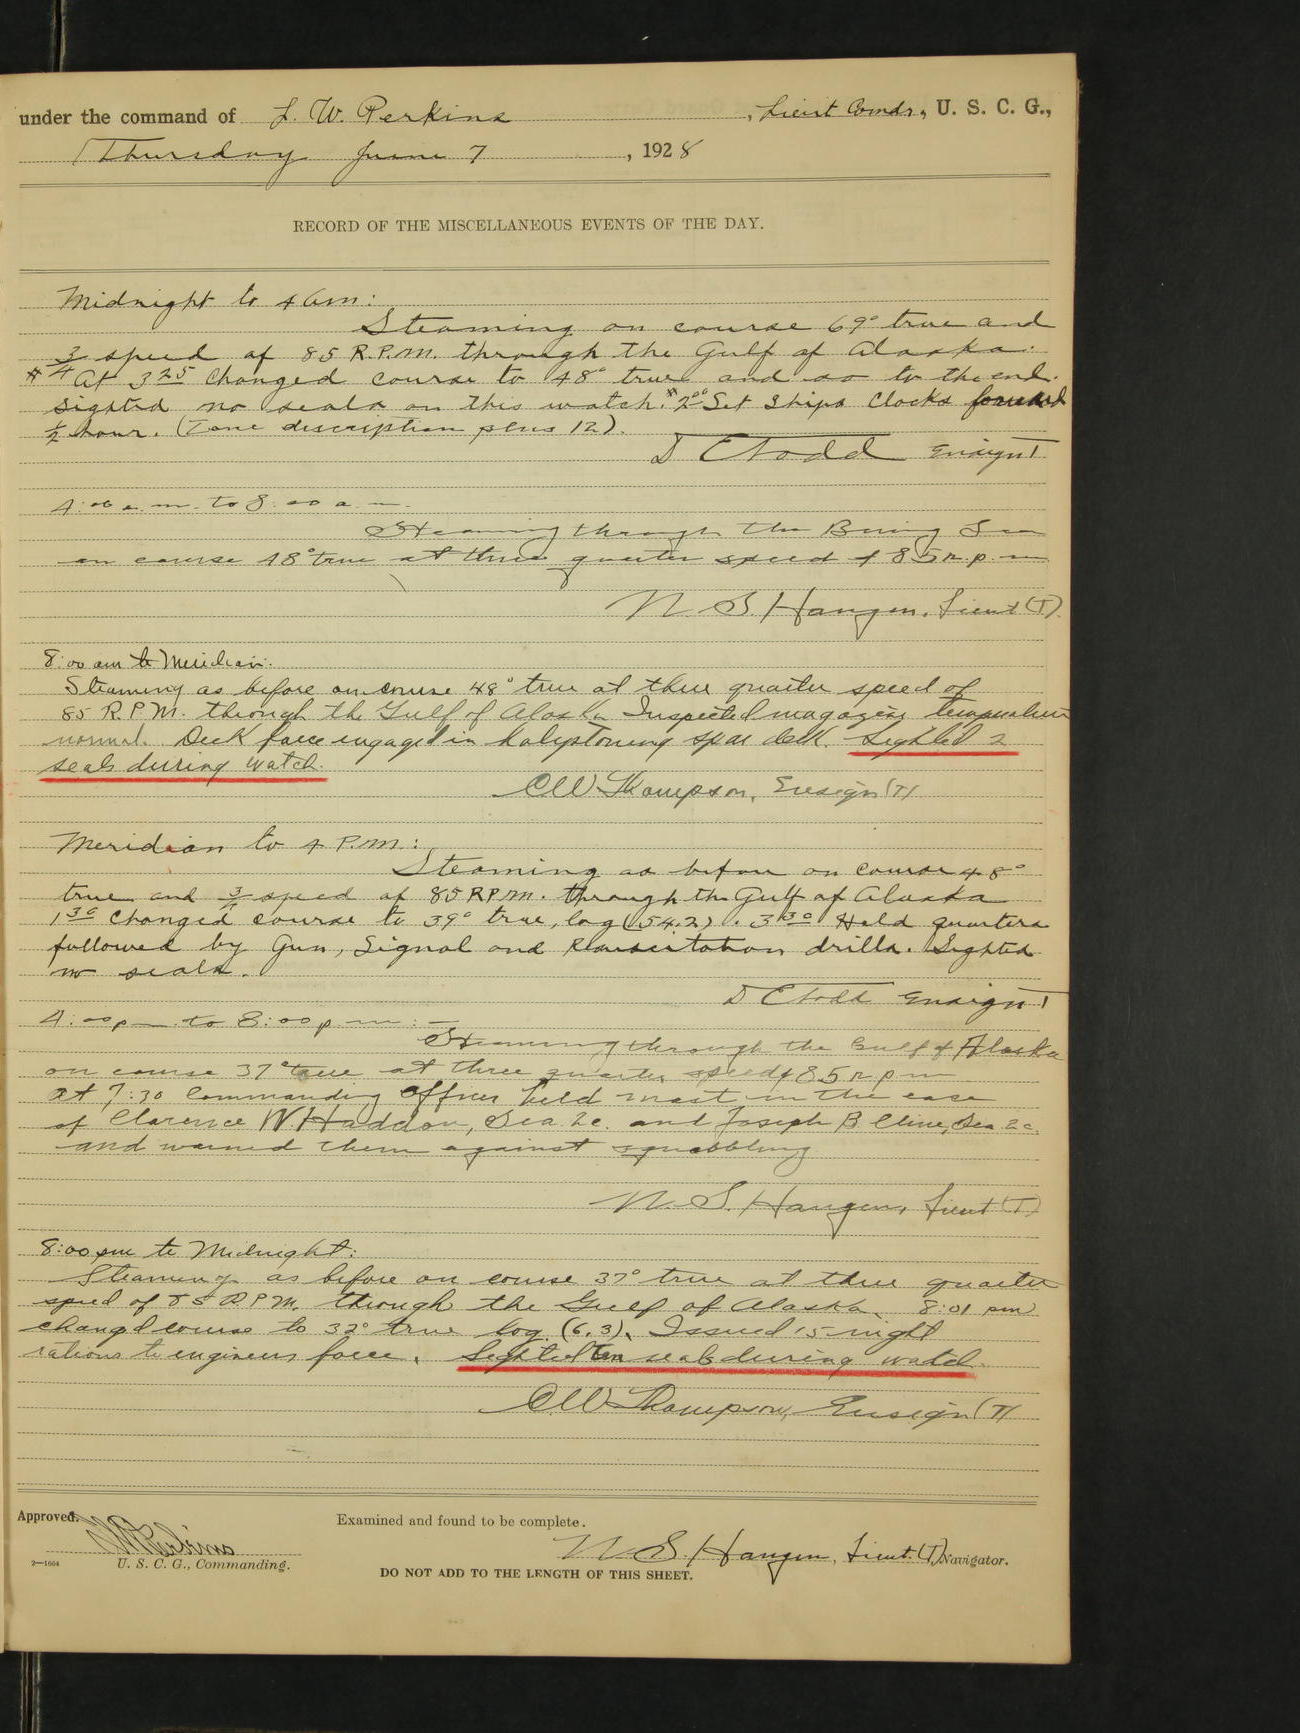 under the command of L. W. Perkins, Lieut Comdr, U. S. C. G.,
Thursday June 7, 1928
RECORD OF THE MISCELLANEOUS EVENTS OF THE DAY.
Midnight to 4 am:
Steaming on course 69° true and
3/4 speed of 85 R.P.M. through the Gulf of Alaska.
# At 3 25 Changed course to 48° true and so to the end.
Sighted no seals on this watch. # 2 00 Set Ships Clocks forward
1/2 hour. (Zone description plus 12).
D C Todd Ensign T
4:00 a.m. to 8:00 a.m.
Steaming through the Bering Sea
on course 48° true at three quarter speed of 85 r.p.m
N. S. Haugen, Lieut (T).
8:00 am to Meridian:
Steaming as before on course 48° true at three quarter speed of
85 R.P.M. through the Gulf of Alaska Inspected magazines temperature
normal. Deck force engaged in holystoning spar deck. Sighted 2
seals during watch.
C W Thompson, Ensign (T)
Meridian to 4 P.M.:
Steaming as before on course 48°
true and 3/4 speed of 85 RPM. through the Gulf of Alaska
1 30 Changed course to 39° true, log (54.2). 3 30 Held quarters
followed by Gun, Signal and Resuscitation drills. Sighted
no seals.
D C Todd Ensign T
4:00 p m to 8:00 p m:-
Steaming through the Gulf of Alaska
on course 37° true at three quarter speed of 85 r p m
at 7:30 Commanding Officer held mast in the case
of Clarence W. Haddon, Sea 2c. and Joseph B Cline, Sea 2c.
and warned them against squabbling
N. S. Haugen, Lieut (T)
8:00 pm to Midnight:
Steaming as before on course 37° true at three quarter
speed of 85 R.P.M. through the Gulf of Alaska. 8:01 pm
changed course to 32° true log (6.3). Issued 15 night
rations to engineers force. Sighted ten seals during watch.
C W Thompson, Ensign (T)
Approved.
Examined and found to be complete.
N. S. Haugen, Lieut. (T) Navigator.
2—1664
U. S. C. G., Commanding.
DO NOT ADD TO THE LENGTH OF THIS SHEET.